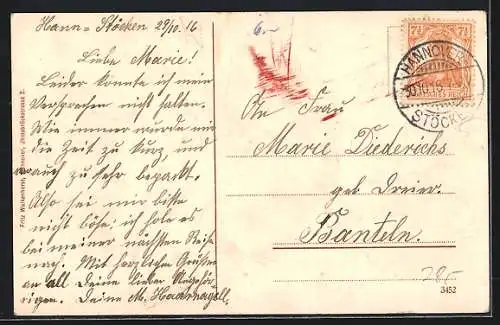 Hann=Stöcken 29/10.16
Liebe Marie!
Leider konnte ich mein
Versprechen nicht halten.
Wie immer wurde mir
die Zeit zu kurz, und
auch zu sehr bepackt.
Also sei mir bitte
nicht böse; ich hole es
bei meiner nächsten Reise
nach. Mit herzlichen Grüssen
an all Deine lieben Angehö=
rigen. Deine M.
An Frau
Marie Diederichs
geb. Dreier.
Banteln.
7½ 7½
DEUTSCHES REICH
HANNOVER
30.10.16
STÖCKEN
285
3452
Fritz Walkenhorst, Hannover,